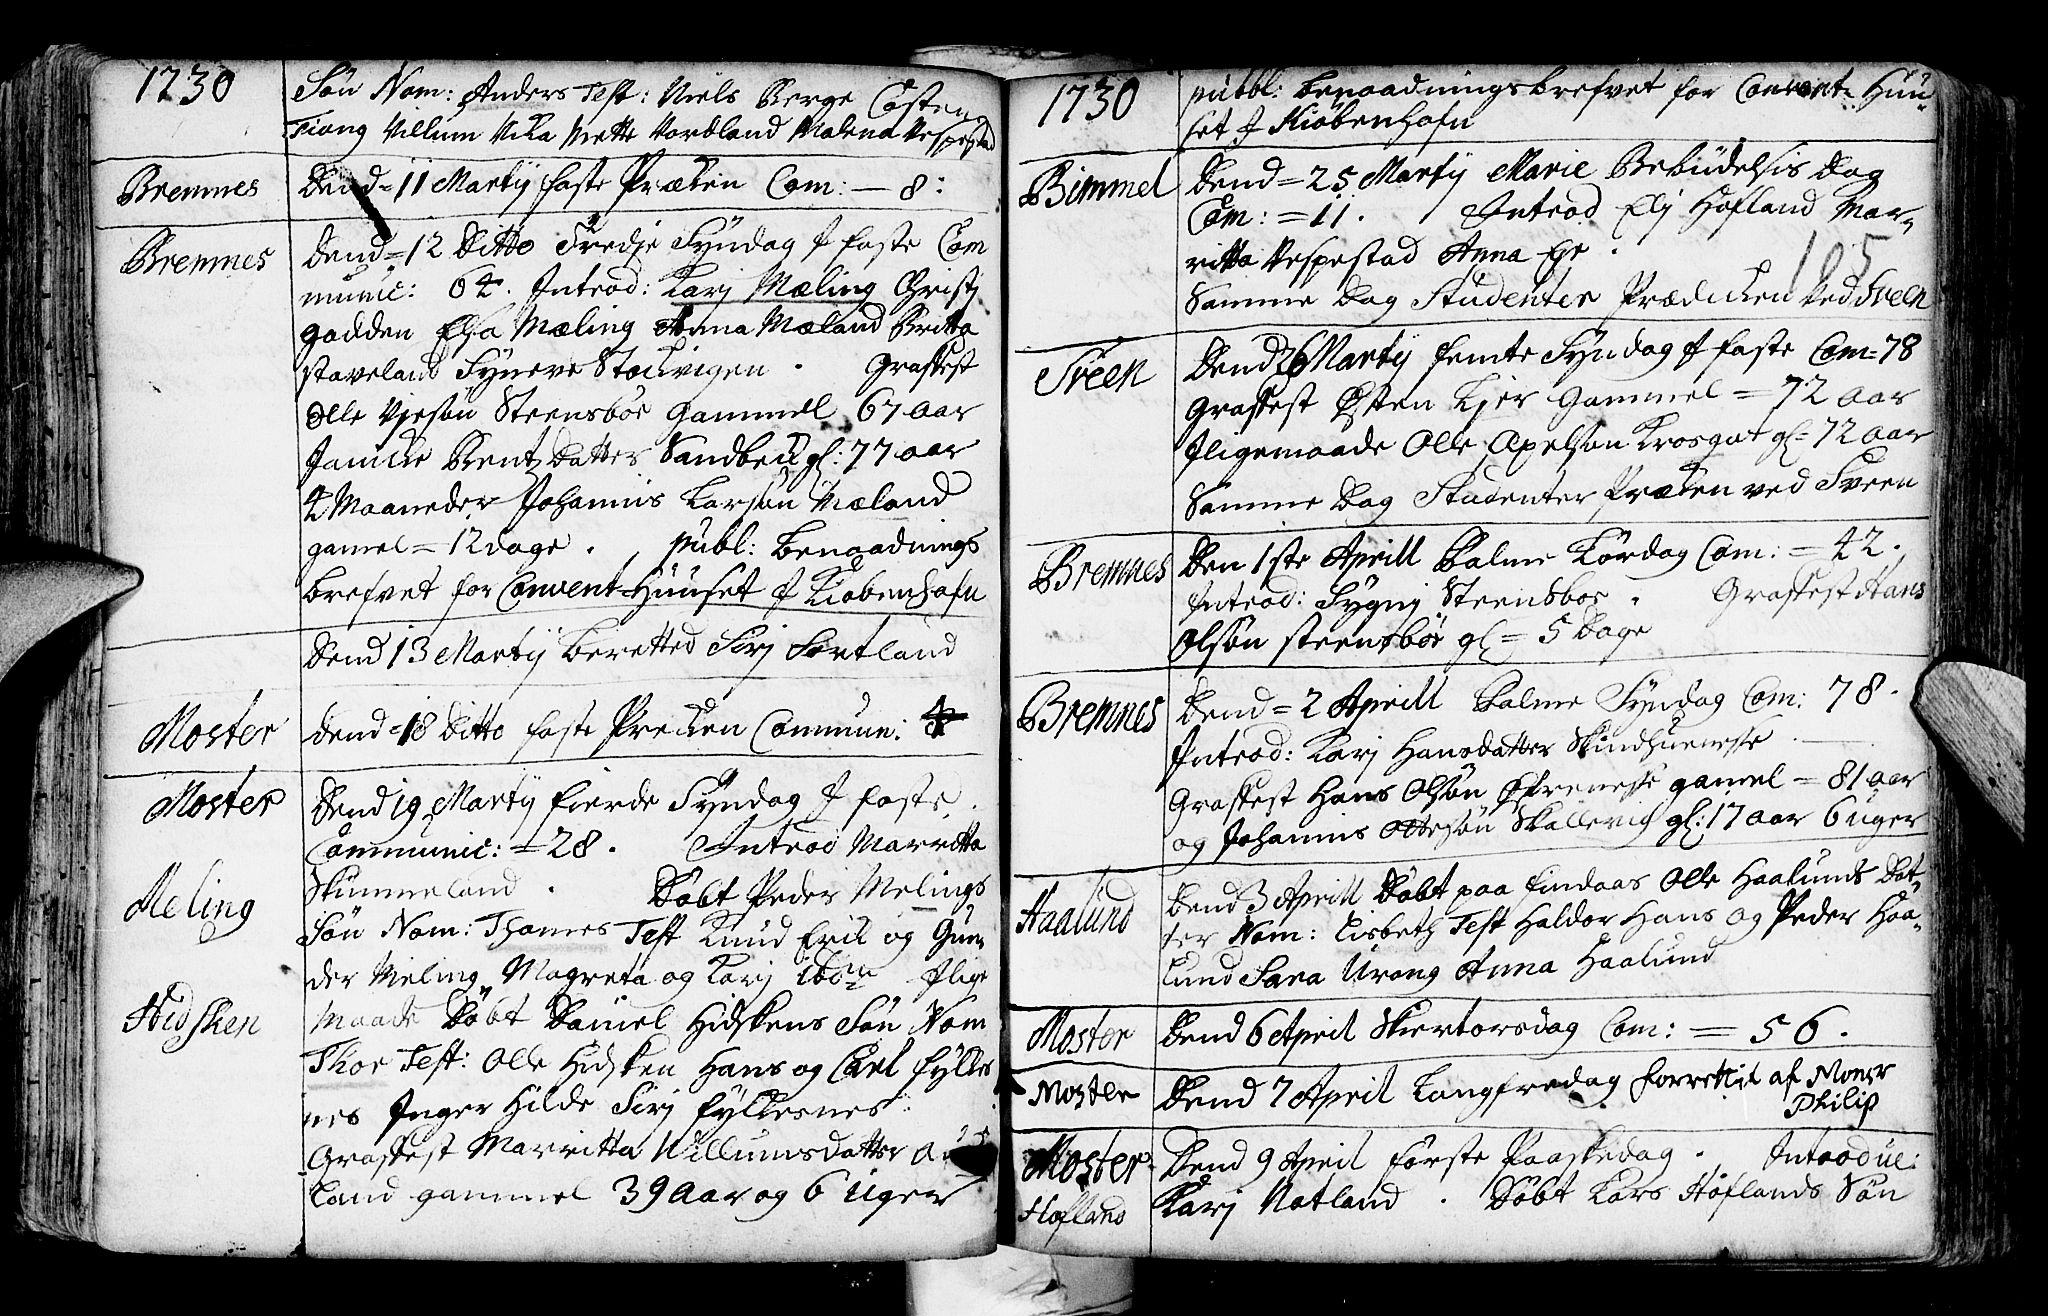 1730
Søn Nom: Anders Test: Niels Berge Costen
Tiong Villum Vika Mette Vordland Malena Vespestad
Bremnes
Dend = 11 Martij faste Præken Com: — 8:
Bremnes
Dend = 12 Ditto Tredje Syndag I faste Com
munic: 64. Introd: Karj Mæling Christj
Gadden Elsa Mæling Anna Mæland Britta
staveland Syneve Stockvigen . Graffest
Olle Vjesøn Steensbøe Gammell 67 Aar
Jannike Bentz Datter Sandvik gl: 77 aar
4 Maaneder Johannis Larsøn Mæland
gamel = 12 dage . publ: Benaadnings
brefvet for Convent-Huuset I Kiøbenhafn
Dend 13 Martij beretted Sirj Sortland
Moster
Dend = 18 Ditto faste Preken Commun: 4
Moster
Dend 19 Martij fierde Syndag I faste.
Communic: = 28 . Introd Marritta
Skummeland . Døbt Peder Melings
Meling
Søn Nom: Thomes Test Knud Erik og Gun
der Meling, Magreta og Karj ibdm Ilige
Hidsken
Maade Døbt Daniel Hidskens Søn Nom
Thor Test: Olle Hidsken Hans og Carl fylkes
nes Inger Hilde Sirj fyllesnes
Graffest Marritta Villumsdatter
Land gammel 39 Aar og 6 Uger
1730
publ: benaadningsbrefvet for Convent-Huu
set I Kiøbenhafn
Bømmel
Dend = 25 Martij Marie Bebudelsis Dag
Com: = 11 . Introd Elj Hofland Mar-
ritta Vespestad Anna Eje .
105
Samme Dag Studenter Prædicken Ved Sveen
Sveen
Dend 26 Martij femte Syndag I faste Com = 78
Graffest Østen Kjer Gammel = 72 aar
Iligemaade Olle Axelsøn Krosgat gl = 72 aar
Samme Dag Studenter Præken ved Sveen
Bremnes
Den 1ste Aprill Palme Lørdag Com: = 42.
Introd: Sygnj Steensboe . Graffest Hans
Olsøn steensbøe gl = 5 Dage
Bremnes
Dend = 2 Aprill Palme Syndag Com: 78.
Introd: Karj Hansdatter .
Graffest Hans Olsøn gamel = 81 aar
og Johannis Ottesøn Skallevich gl: 17 aar 6 uger
Haalund
Dend 3 Aprill Døbt paa findaas Olle Haalunds Dat-
ter Nom: Lisbeth Test Haldor Hans og Peder Haa-
lund Sara Urang Anna Haalund
Moster
Dend 6 April Skiertorsdag Com: = 56.
Moster
Dend 7 April Langfredag forrettit af Monsr
Philip
Moster
Dend 9 April Første Paaskedag . Introduc:
Hofland
Karj Natland . Døbt Lars Høflands Søn